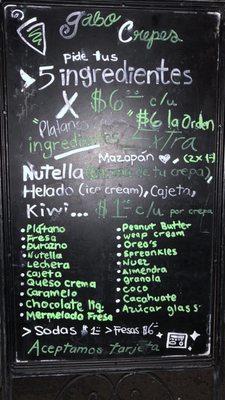 gabo
Crepes
pide tus
5 ingredientes
X $6 c/u
"Platano" $6 la Orden
ingrediente Extra
Mazapán (2x1)
Nutella (encima de tu crepa)
Helado (ice cream), Cajeta,
Kiwi... $1 c/u por crepa
Plátano
Fresa
Durazno
Nutella
Lechera
Cajeta
Queso crema
Caramelo
Chocolate Hq.
Mermelada Fresa
Peanut Butter
Weap cream
Oreo's
Spreankles
Nuez
Almendra
granola
Coco
Cacahuate
Azúcar glass
> Sodas $1 > Fresas $6
Aceptamos tarjeta